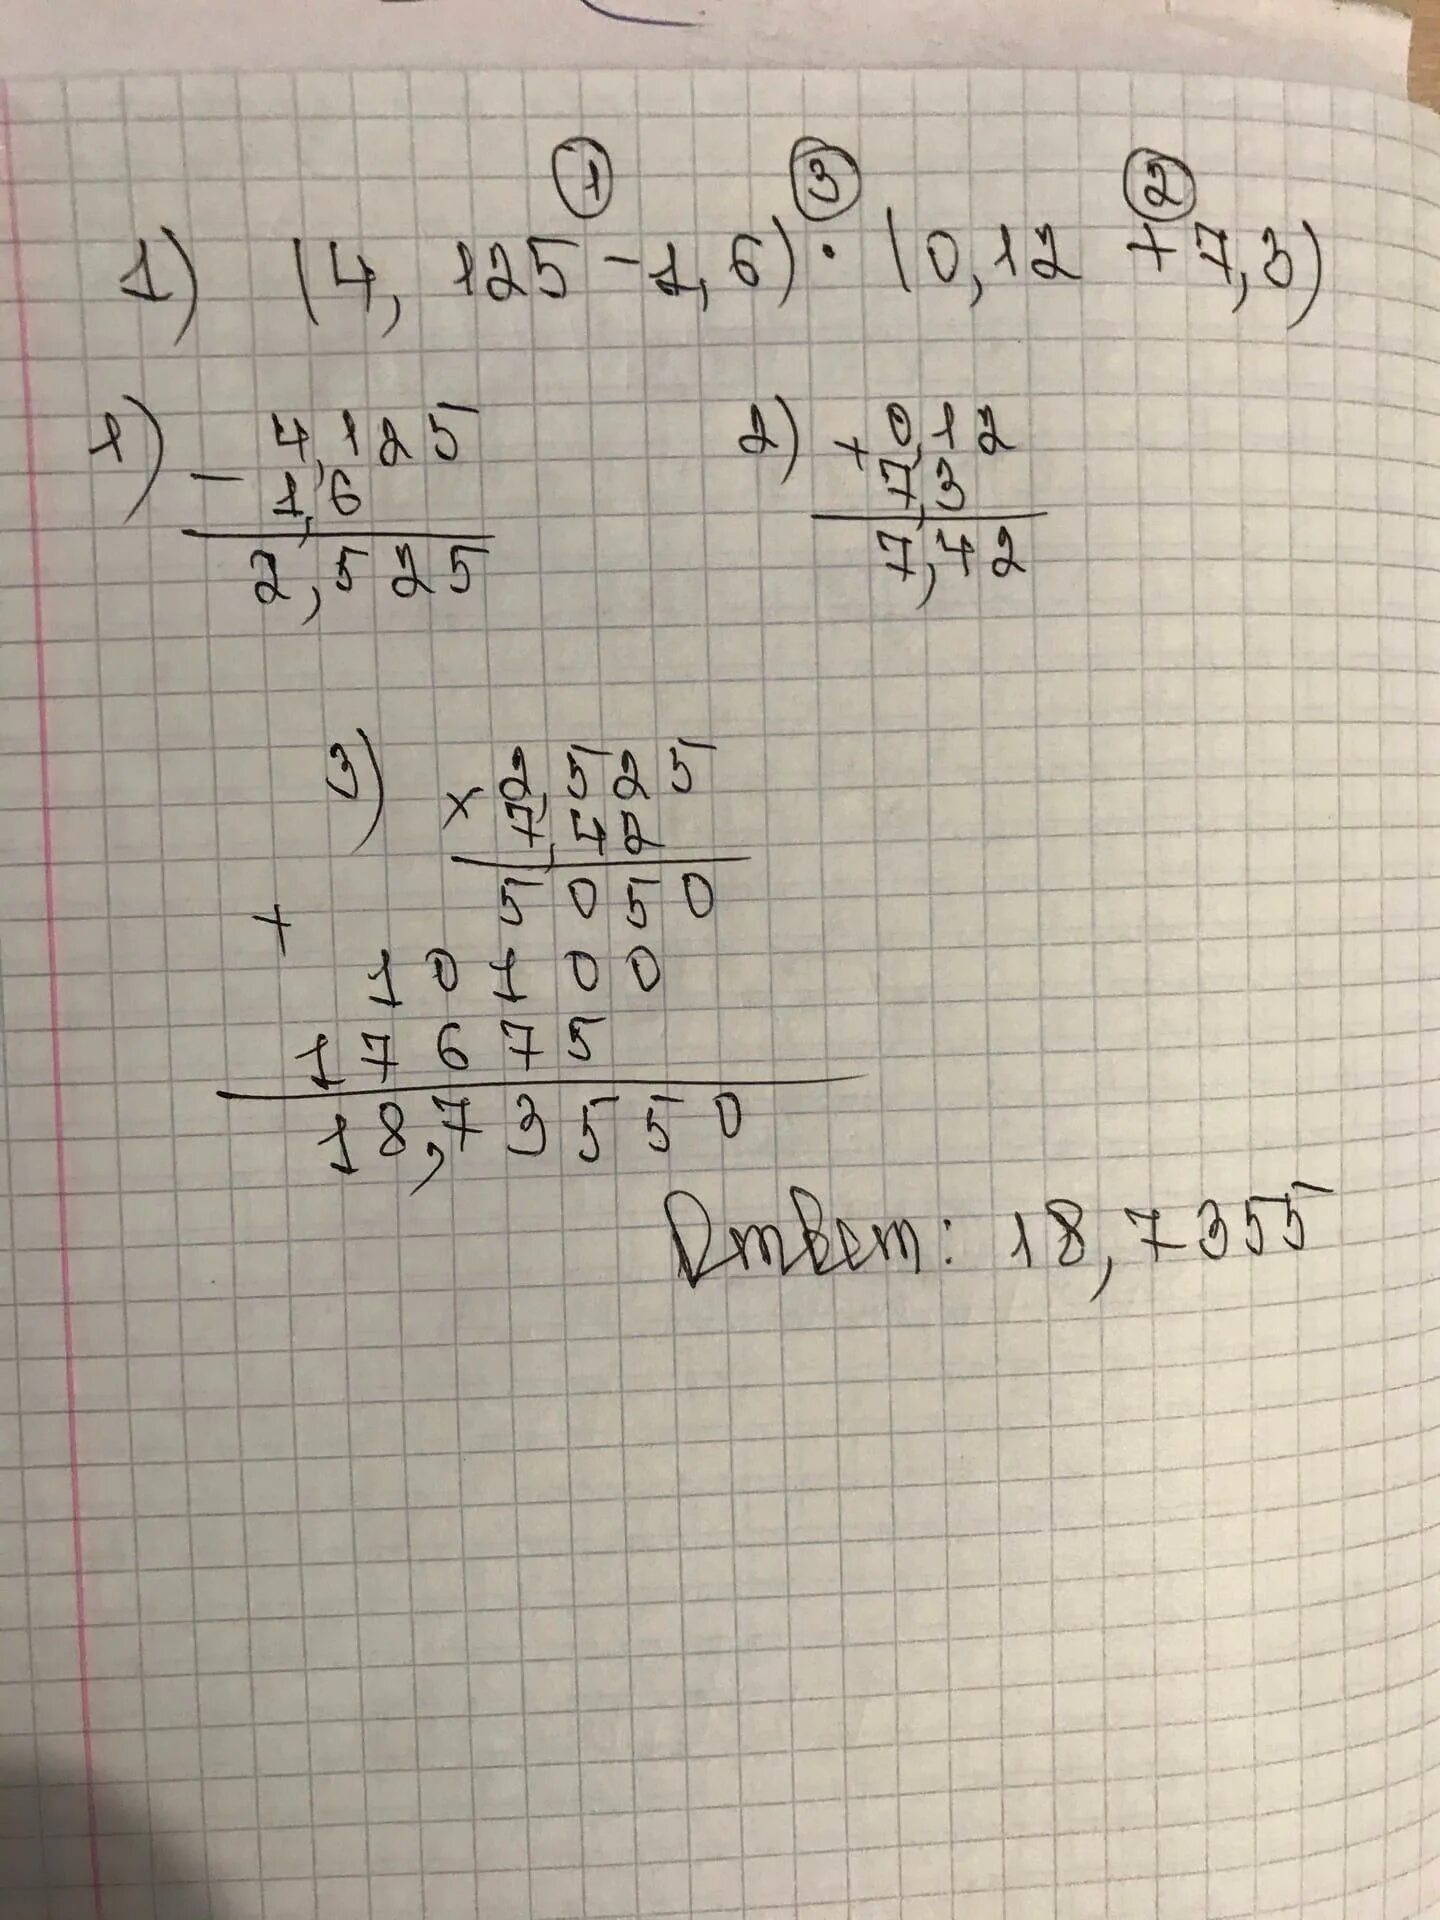 1 3 2
1) (4,125 - 1,6) · (0,12 + 7,3)
1) 4,125 2) 0,12
- 1,6 + 7,3
2,525 7,42
3) 2,525
× 7,42
5050
+ 10100
17675
18,73550
Ответ: 18,7355